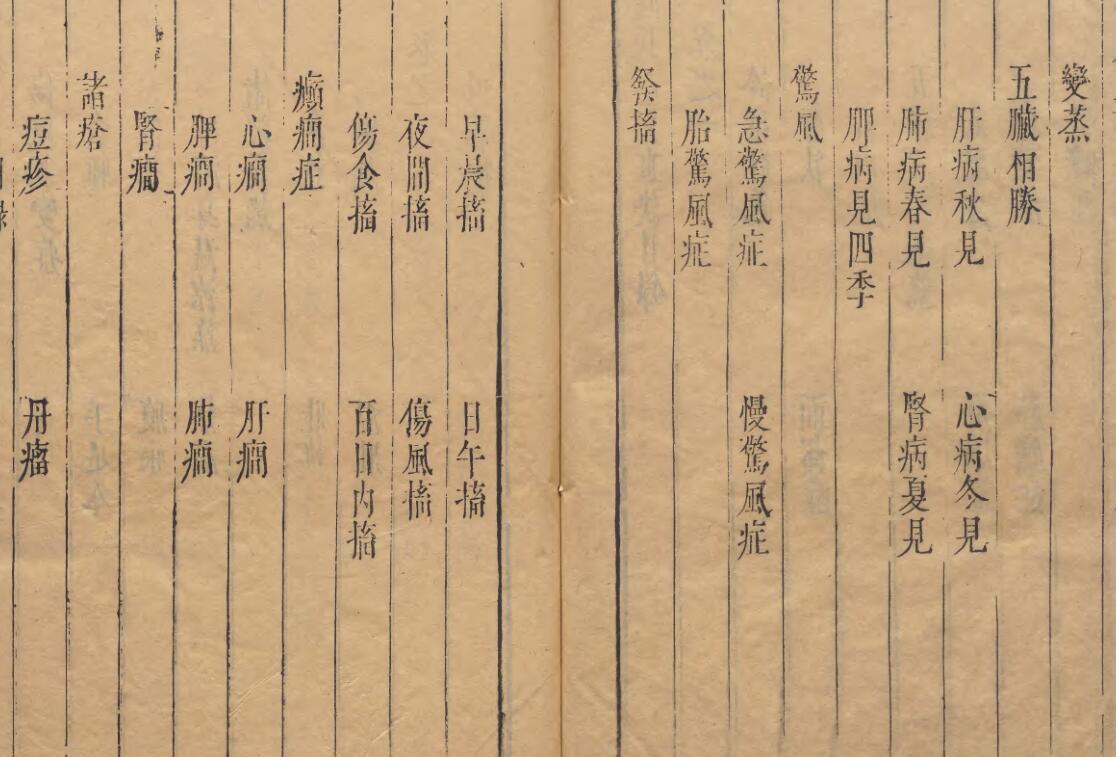 變蒸
五臟相勝
肝病秋見　心病冬見
肺病春見　腎病夏見
脾病見四季
驚風
急驚風症　慢驚風症
胎驚風症
發搐
早晨搐　日午搐
夜間搐　傷風搐
傷食搐　百日內搐
癲癇症
心癇　肝癇
脾癇　肺癇
腎癇
諸瘡
痘疹　丹瘤